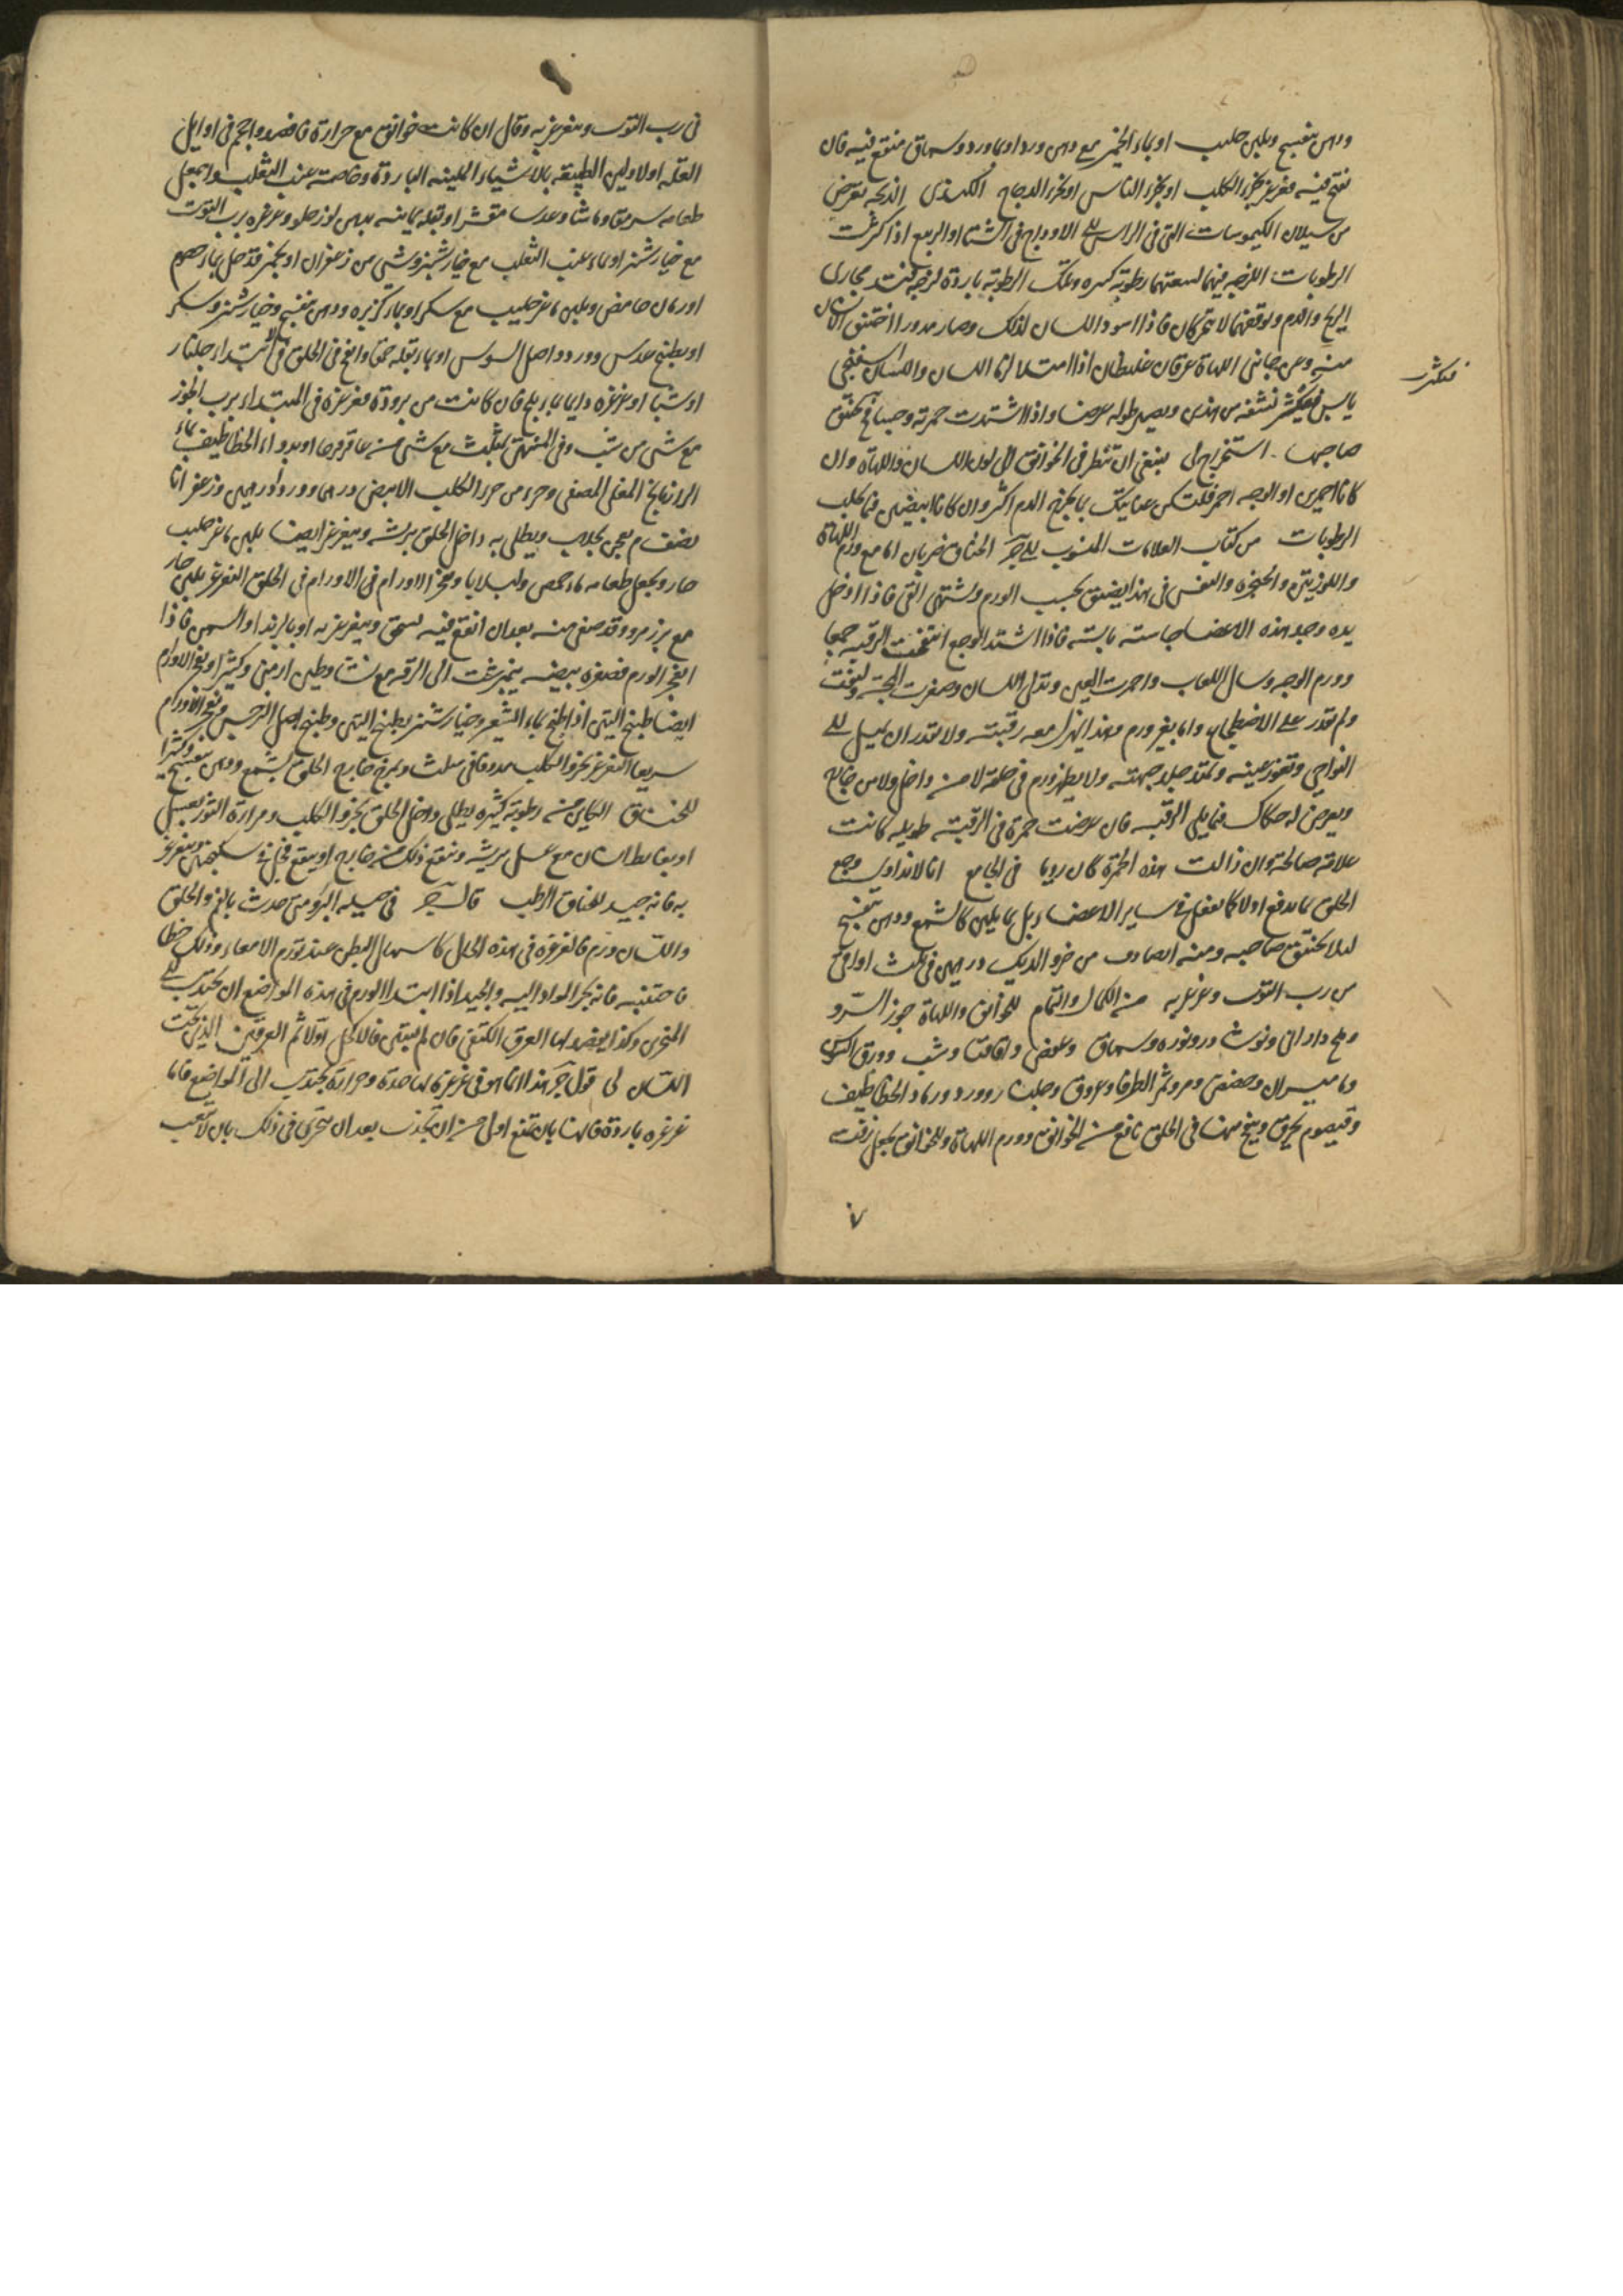 ودهن بنفسج وبلبن حليب او بماء الخمير مع دهن ورد او بماء ورد وسماق منقع فيه فان
نفخ فيه فغرغر بخرء الكلب او بخرء الناس او بخرء الدجاج الكندى الذبحه تعرض
من سيلان الكيموسات التى فى الراس الى الاوداج فى الشتاء او الربيع اذا كثرت
الرطوبات اللزجه فيهما لسعتهما رطوبة كثيره وتلك الرطوبة باردة لزجه فتسد مجارى
الريح والدم وتوقفهما لا تتحركان فاذا اسود اللسان لذلك وصار مدورا اختنق الانسان
منه ومن جانبى اللهاة عرقان غليظان اذا امتلئا لزقا اللسان واللسان اسفنجى
يابس فيكثر نشفه من هذين ويصير طوله عرضا واذا اشتدت حمرته وحبسا فيختنق
فيكثر
صاحبها . استخراج لى ينبغى ان تنظر فى الخوانيق الى لون اللسان واللهاة وان
كانا احمرين او الوجه احمر فلتكن عنايتك بما يخرج الدم اكثر وان كانا ابيضين فما يحلب
الرطوبات من كتاب العلامات المنسوب الى جـ الخناق ضربان اما مع ورم اللهاة
واللوزيتين والحنجرة والنفس فى هذا يضيق بحسب الورم ويشتهى القى فاذا ادخل
يده وجد هذه الاعضا جاسئه يابسة فاذا اشتد الوجع انتفخت الرقبة جميعا
وورم الوجه وسال اللعاب واحمرت العين وتدلى اللسان وصغرت المجسة
ولم تقدر على الاضطجاع واما بغير ورم وهذا يهزل معه رقبته ولا تقدر ان يميل الى
النواحى وتغور عينه ويمتد جلد جبهته ولا يظهر ورم فى حلقه لا من داخل ولا من خارج
ويعرض له حكاك فيما يلى الرقبة فان عرضت حمرة فى الرقبة طويله كانت
علامة صالحة وان زالت هذه الحمرة كان رديا فى الجامع انا لا نداوى وجع
الحلق بما يدفع اولا كما نفعل فى ساير الاعضاء بل بما يلين كالشمع ودهن بنفسج
لئلا يختنق صاحبه ومنه ايضا دف من خرو الديك درهمين فى ثلث اواق
من رب التوت وغرغر به من الكمال والتمام للخوانيق واللهاة جوز السرو
وملح دارانى ونوشادر ونوره وسماق وعفص واقاقيا وشب وورق السوسن
وماميران وحضض ومر وثمر الطرفا وعروق وجلنار وورد ورماد الخطاطيف
وقيصوم يحرق وينفخ منها فى الحلق نافع من الخوانيق وورم اللهاة وللخوانيق يجعل زفت
فى رب التوت ويتغرغر به وقال ان كانت خوانيق مع حرارة فافصد واحجم فى اوايل
العله اولا ولين الطبيعه بالاشياء اللينه الباردة وخاصة عنب الثعلب واجعل
طعامه سرمقا وماشا وعدسا مقشرا وبقله يمانيه بدهن لوز حلو وغرغره برب التوت
مع خيارشنبر او بماء عنب الثعلب مع خيارشنبر وشى من زعفران او بخمير قد حل بماء حصرم
او رمان حامض وبلبن ماعز حليب مع سكر او بماء كزبره ودهن بنفسج وخيارشنبر وسكر
او بطبيخ عدس وورد واصل السوس او بماء بقله حمقا وانفخ فى الحلق فى الابتداء جلنار
او شبا او غرغره دايما بماء ثلج فان كانت من برودة فغرغره فى المبتداء برب الجوز
مع شى من شب وفى المنتهى بمثلث مع شى من عاقرقرحا او بدواء الخطاطيف بماء
الرازيانج المغلى المصفى وجزء من خرء الكلب الابيض درهما وورد درهمين وزعفرانا
نصف م يعجن بجلاب ويطلى به داخل الحلق بريشه ويتغرغر ايضا بلبن ماعز حليب
حار ويجعل طعامه ماء حمص ولبلابا ومفجر الاورام فى الاورام فى الحلق التغرغر بلبن حار
مع بزر مرو وقد صفى منه بعد ان انقع فيه يسحق ويتغرغر به او بالزبد او السمن فاذا
انفجر الورم فصفرة بيضه نيمبرشت الى الرقه مع نشا وطين ارمنى وكثيرا ومفجر الاورام
ايضا طبيخ التين اذا طبخ بماء الشعير وخيارشنبر بطبيخ التين وطبيخ اصل النرجس ومفجر الاورام
سريعا التغرغر بخرو الكلب مدوفا فى مثلث ويمرخ خارج الحلق بشمع ودهن بنفسج وكثيرا
للخناق الكاين من رطوبة كثيره يطلى داخل الحلق بخرو الكلب ومرارة الثور بعسل
او بغايط انسان مع عسل بريشه وينفع ذلك من خارج او ينقع فجل فى سكنجبين ويتغرغر
به فانه جيد للخناق الرطب قال جـ فى حيله البرو متى حدث بالفم والحلق
واللسان ورم فالغرغره فى هذه الحال كاسهال البطن عند تورم الامعاء وذلك خطا
فاجتنبه فانه يجر المواد اليه والجيد اذا ابتدا الورم فى هذه المواضع ان يجتذب الى
المنخرين وكذا يفصد لها العرق الكتفى فان لم يتبين فالاكحل اولا ثم العرقين اللذين تحت
اللسان لى قول جـ هذا انما هو فى غرغرة لها حدة وحرارة يجتذب الى المواضع فاما
غرغره باردة فانها بان تمنع اولى من ان تجذب بعد ان تتحرى فى ذلك بان لا يتعب